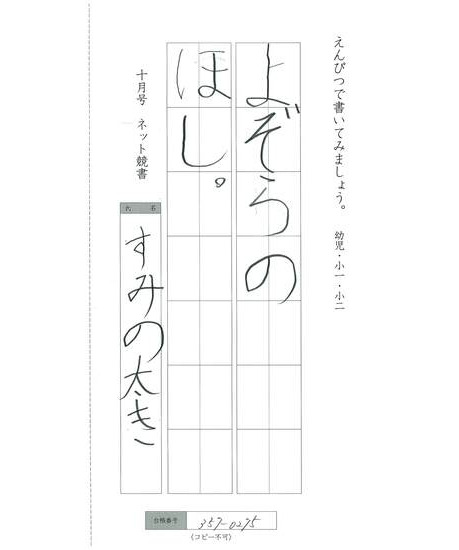 えんぴつで書いてみましょう。 幼児・小一・小二
よぞらの
ほし。
十月号 ネット競書
氏 名
すみの太き
台帳番号 357-0275
(コピー不可)